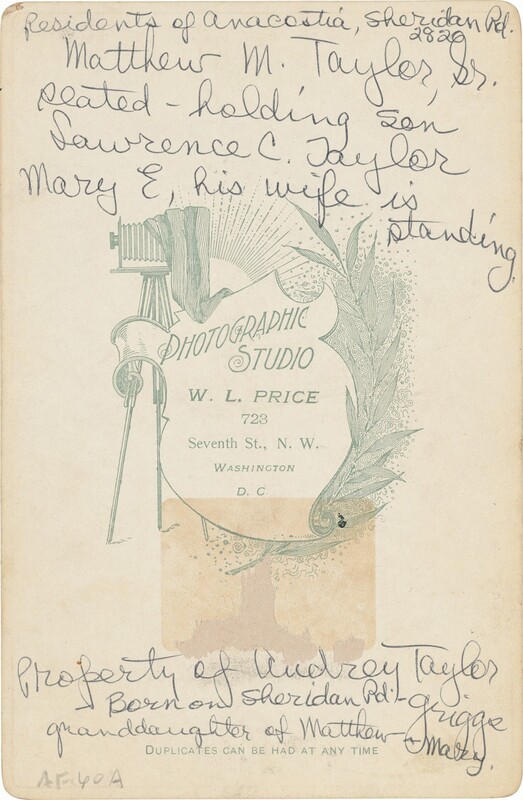 Residents of Anacostia, Sheridan Rd.
2820
Matthew M. Taylor, Sr.
seated - holding son
Lawrence C. Taylor
Mary E, his wife is
standing
PHOTOGRAPHIC
STUDIO
W. L. PRICE
723
Seventh St., N. W.
WASHINGTON
D. C
Property of Audrey Taylor
Griggs
Born on Sheridan Rd.-
granddaughter of Matthew + Mary.
DUPLICATES CAN BE HAD AT ANY TIME
AF-60A